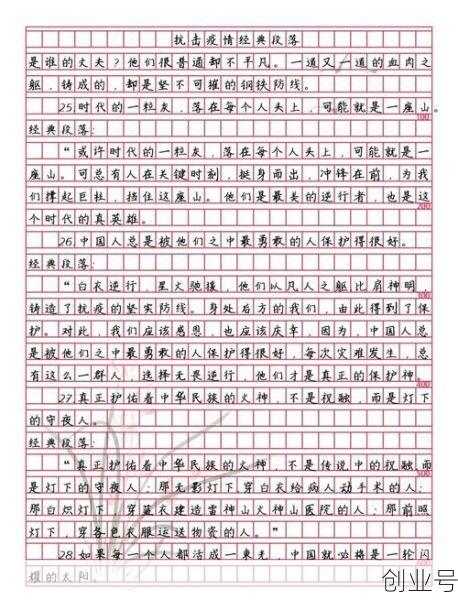 抗击疫情经典段落
是谁的丈夫？他们很普通却不平凡。一道又一道的血肉之
躯，铸成的，却是坚不可摧的钢铁防线。
25.时代的一粒灰，落在每个人头上，可能就是一座山。
100
经典段落：
“或许时代的一粒灰，落在每个人头上，可能就是一
座山。可总有人在关键时刻，挺身而出，冲锋在前，为我
们撑起巨柱，挡住这座山。他们是最美的逆行者，也是这
200
个时代的真英雄。
26.中国人总是被他们之中最勇敢的人保护得很好。
经典段落：
“白衣逆行，星火驰援，他们以凡人之躯比肩神明，
300
铸造了抗疫的坚实防线。身处后方的我们，由此得到了保
护。对此，我们应该感恩，也应该庆幸，因为，中国人总
是被他们之中最勇敢的人保护得很好，每次灾难发生，总
有这么一群人，选择无畏逆行，他们才是真正的保护神。
400
27.真正护佑着中华民族的火神，不是祝融，而是灯下
的守夜人。
经典段落：
“真正护佑着中华民族的火神，不是传说中的祝融，而
500
是灯下的守夜人；那无影灯下穿白衣给病人动手术的人；
那白炽灯下，穿蓝衣建造雷神山火神山医院的人；那前照
灯下，穿各色衣服运送物资的人。”
28.如果每一个人都活成一束光，中国就必将是一轮闪
600
耀的太阳。
创业号